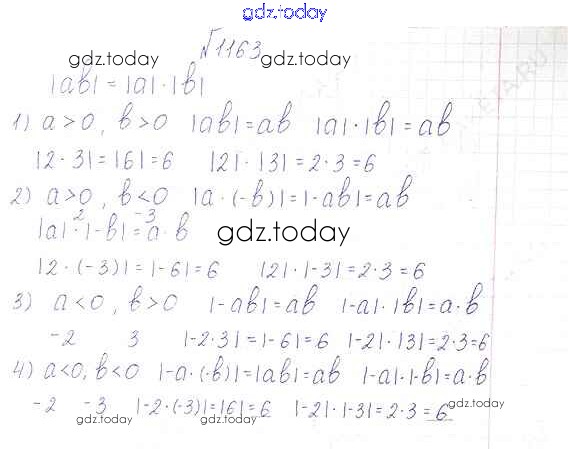 gdz.today
№1163
gdz.today gdz.today
|ab| = |a| · |b|
1) a > 0, b > 0 |ab| = ab |a| · |b| = ab
|2 · 3| = |6| = 6 |2| · |3| = 2 · 3 = 6
2) a > 0, b < 0 |a · (-b)| = |-ab| = ab
2 -3
|a| · |-b| = a · b
gdz.today
|2 · (-3)| = |-6| = 6 |2| · |-3| = 2 · 3 = 6
3) a < 0, b > 0 |-ab| = ab |-a| · |b| = a · b
-2 3 |-2 · 3| = |-6| = 6 |-2| · |3| = 2 · 3 = 6
4) a < 0, b < 0 |-a · (-b)| = |ab| = ab |-a| · |-b| = a · b
-2 -3 |-2 · (-3)| = |6| = 6 |-2| · |-3| = 2 · 3 = 6
gdz.today gdz.today gdz.today